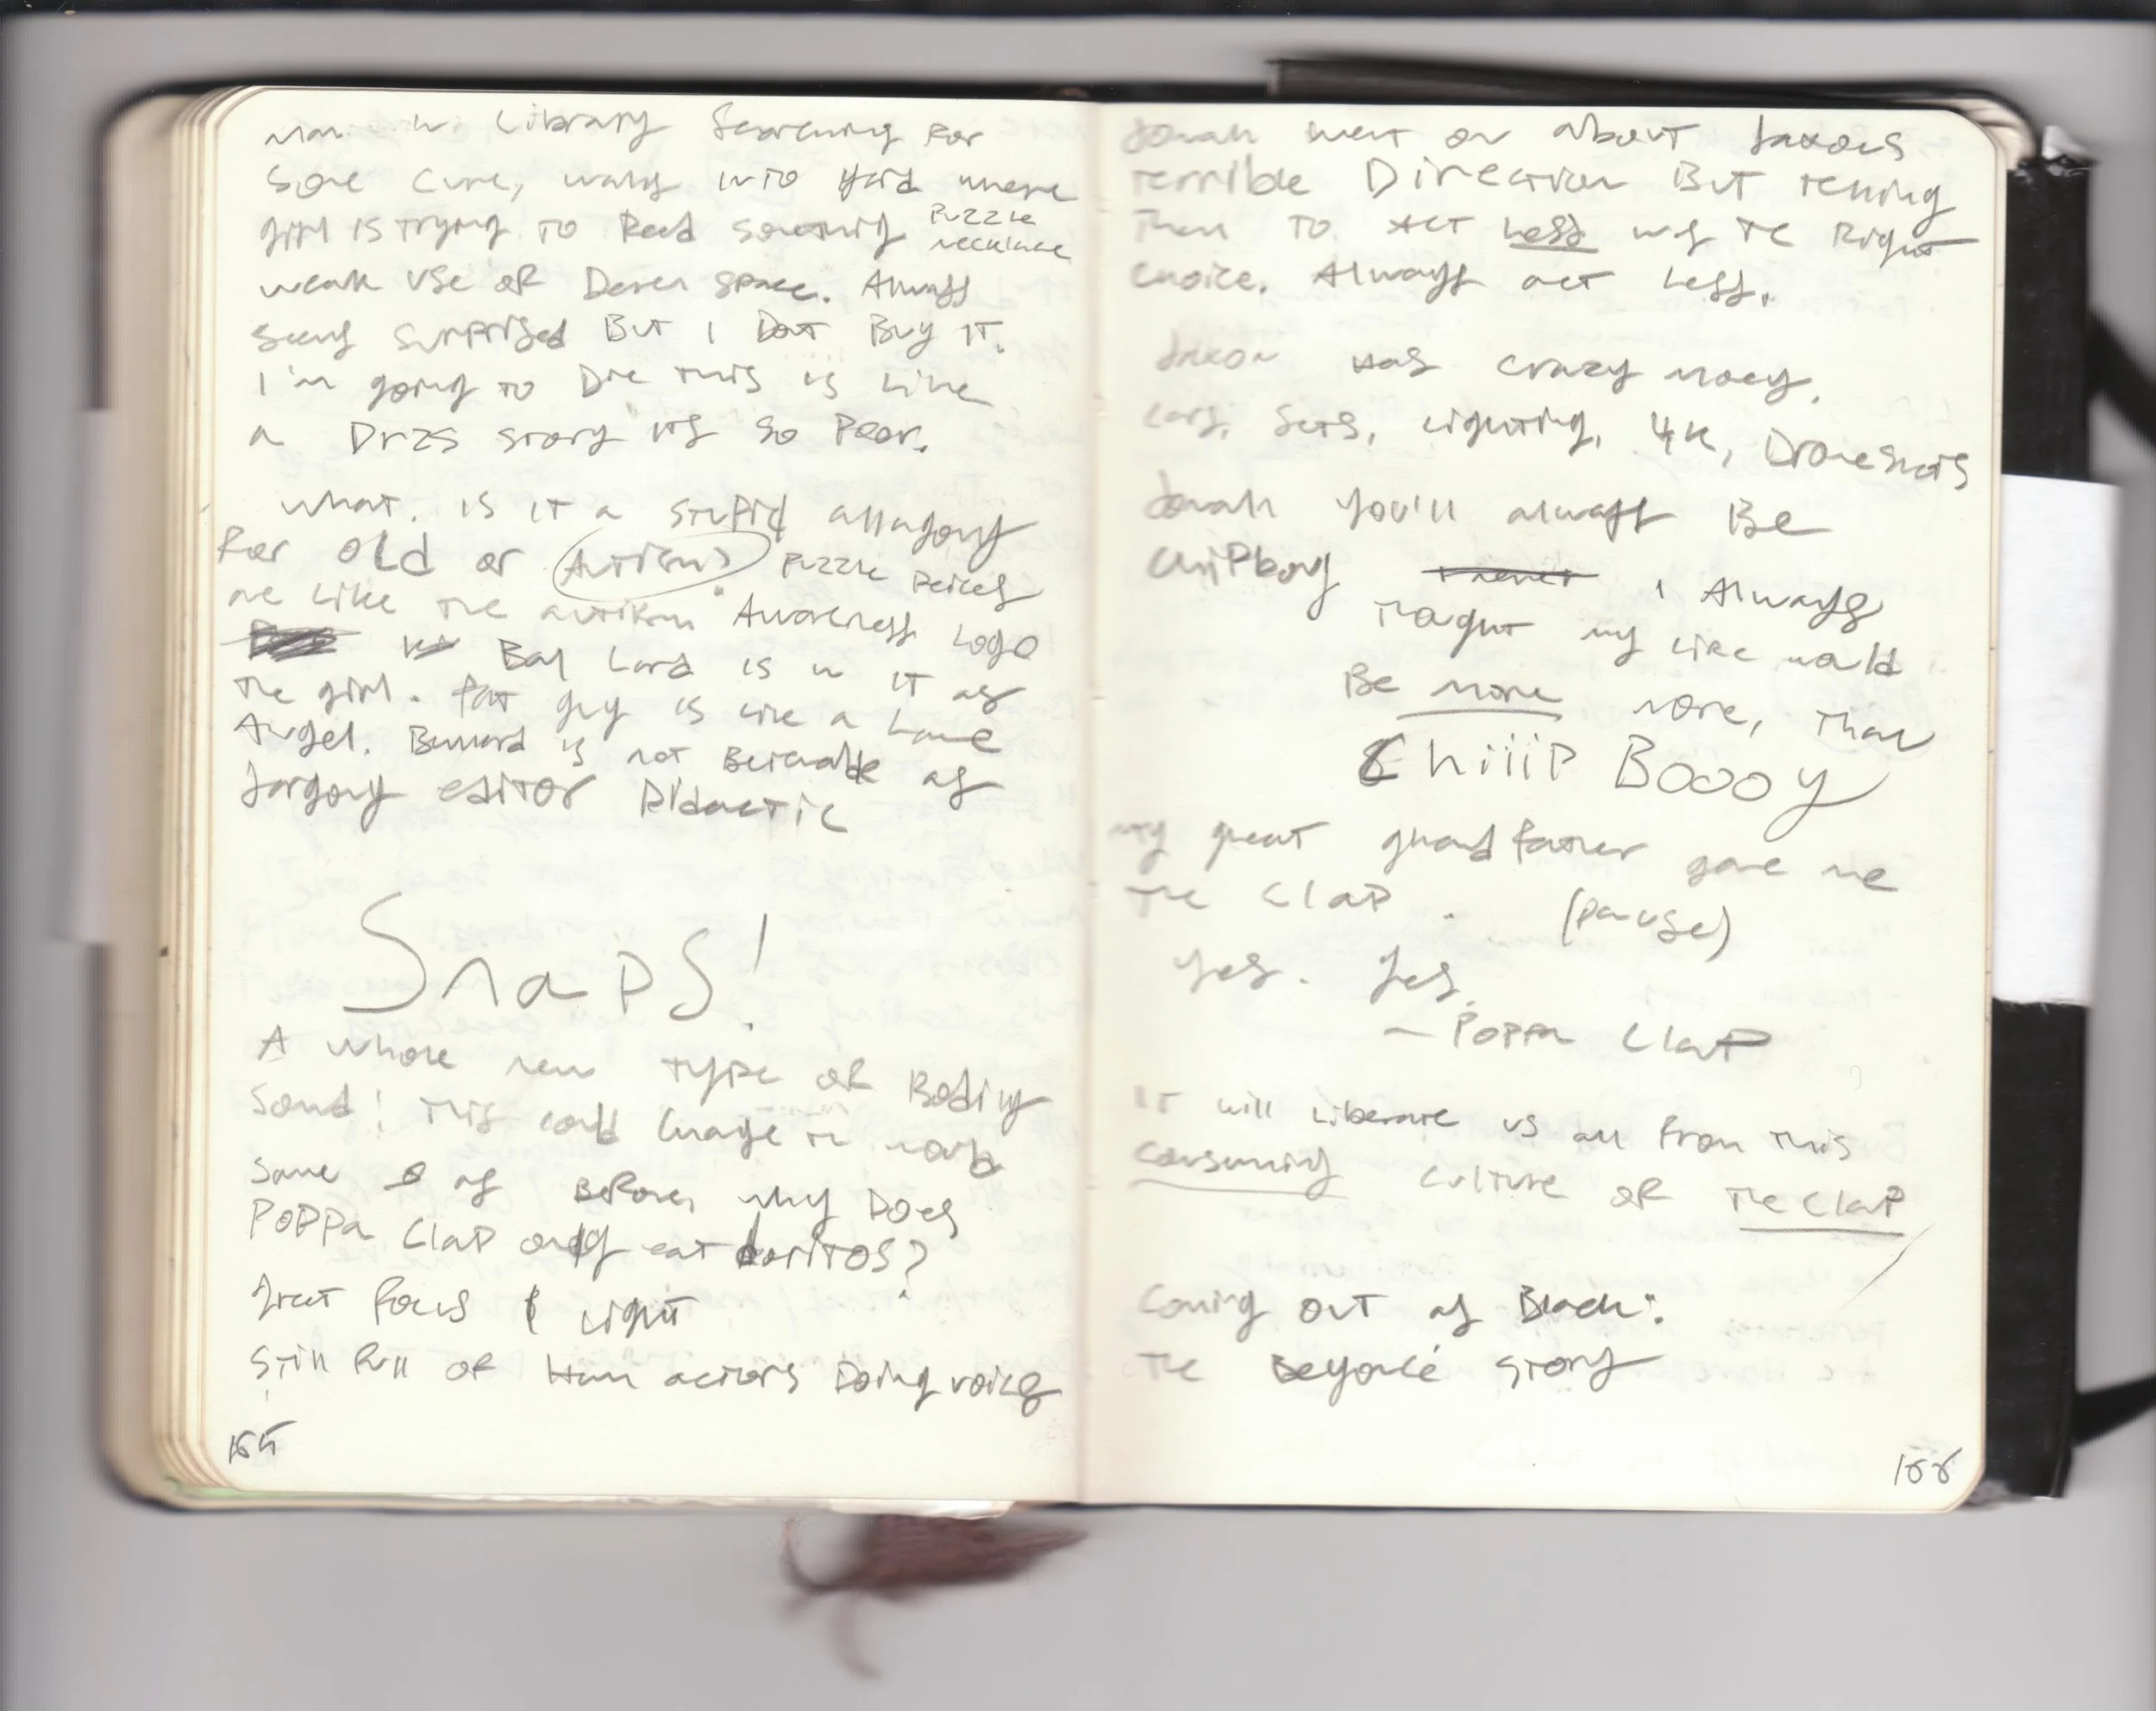 Man in Library Searching For
Some cure, walks into yard where
girl is trying to Read something Puzzle
necklace
weak use of space. Always
seems surprised But I Dont Buy IT.
I'm going to Die this is Like
a story its so Poor.
what. is IT a stupid allagory
For old or Autism? Puzzle Peices
are Like the autism Awareness Logo
Bay Lord is in IT as
the girl. Fat guy is like a Lame
Angel. Bernard is not Beivable as
editor Didactic
Snaps!
A whole new type of Bodily
Sound! This could Change the world
Same as Before, why Does
Poppa Clap only eat doritos?
Great Focus & Light
Still Full of Ham actors Doing voices
165
Jonah went on about Jaxons
terrible Direction But telling
Them To Act Less was The Right
choice. Always act Less.
Jaxon Has crazy money.
Cars, Sets, Lighting, 4K, Drone Shots
Jonah You'll always Be
Chipboy I Always
Thought my Life would
Be more more, Than
Chiiip Boooy
My great grandfather gave me
The Clap. (Pause)
Yes. Yes.
- Poppa Clap
IT will Liberate us all From This
consuming culture of The Clap
Coming out as Black:
The Beyoncé Story
166